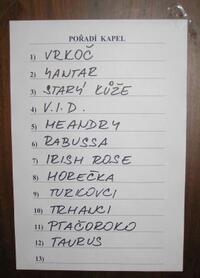 POŘADÍ KAPEL
1) VRKOČ
2) YANTAR
3) STARÝ KŮŽE
4) V.I.D.
5) MEANDRY
6) RABUSSA
7) IRISH ROSE
8) HOREČKA
9) TURKOVCI
10) TRHAVCI
11) PTAČOROKO
12) TAURUS
13)